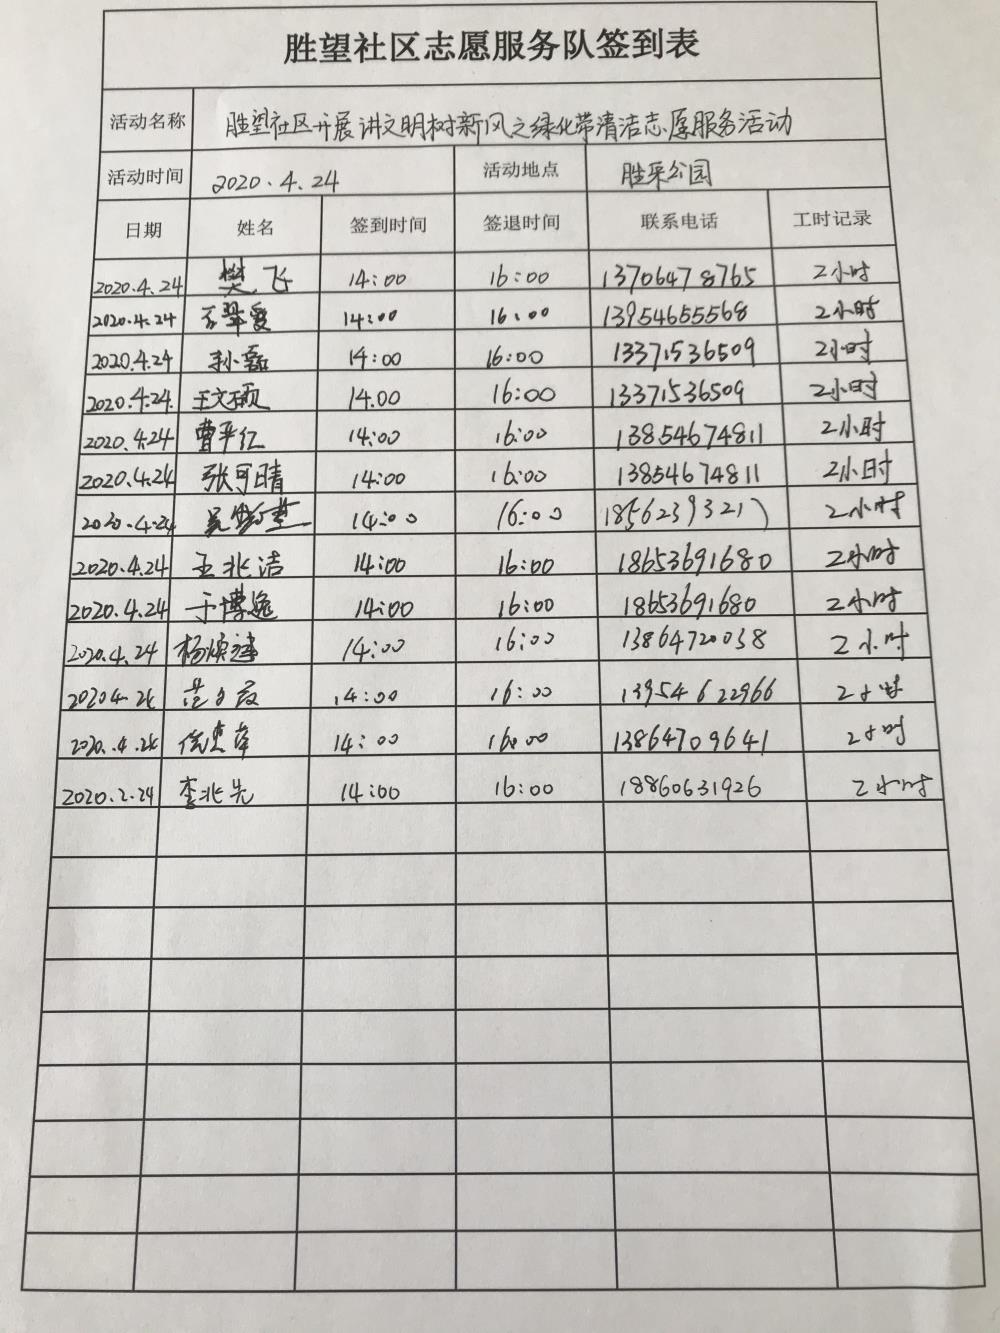 胜望社区志愿服务队签到表
活动名称 胜望社区开展讲文明树新风之绿化带清洁志愿服务活动
活动时间 2020.4.24 活动地点 胜采公园
日期 姓名 签到时间 签退时间 联系电话 工时记录
2020.4.24 樊飞 14:00 16:00 13706478765 2小时
2020.4.24 14:00 16:00 13954655568 2小时
2020.4.24 李小磊 14:00 16:00 13371536509 2小时
2020.4.24. 王文硕 14.00 16:00 13371536509 2小时
2020.4.24 曹平仁 14:00 16:00 13854674811 2小时
2020.4.24 张可晴 14:00 16:00 13854674811 2小时
2020.4.24 14:00 16:00 2小时
2020.4.24 王兆洁 14:00 16:00 18653691680 2小时
2020.4.24 于博逸 14:00 16:00 18653691680 2小时
2020.4.24 14:00 16:00 13864720038 2小时
14:00 16:00 13954622966 2小时
14:00 16:00 13864709641 2小时
2020.2.24 李兆先 14:00 16:00 18860631926 2小时